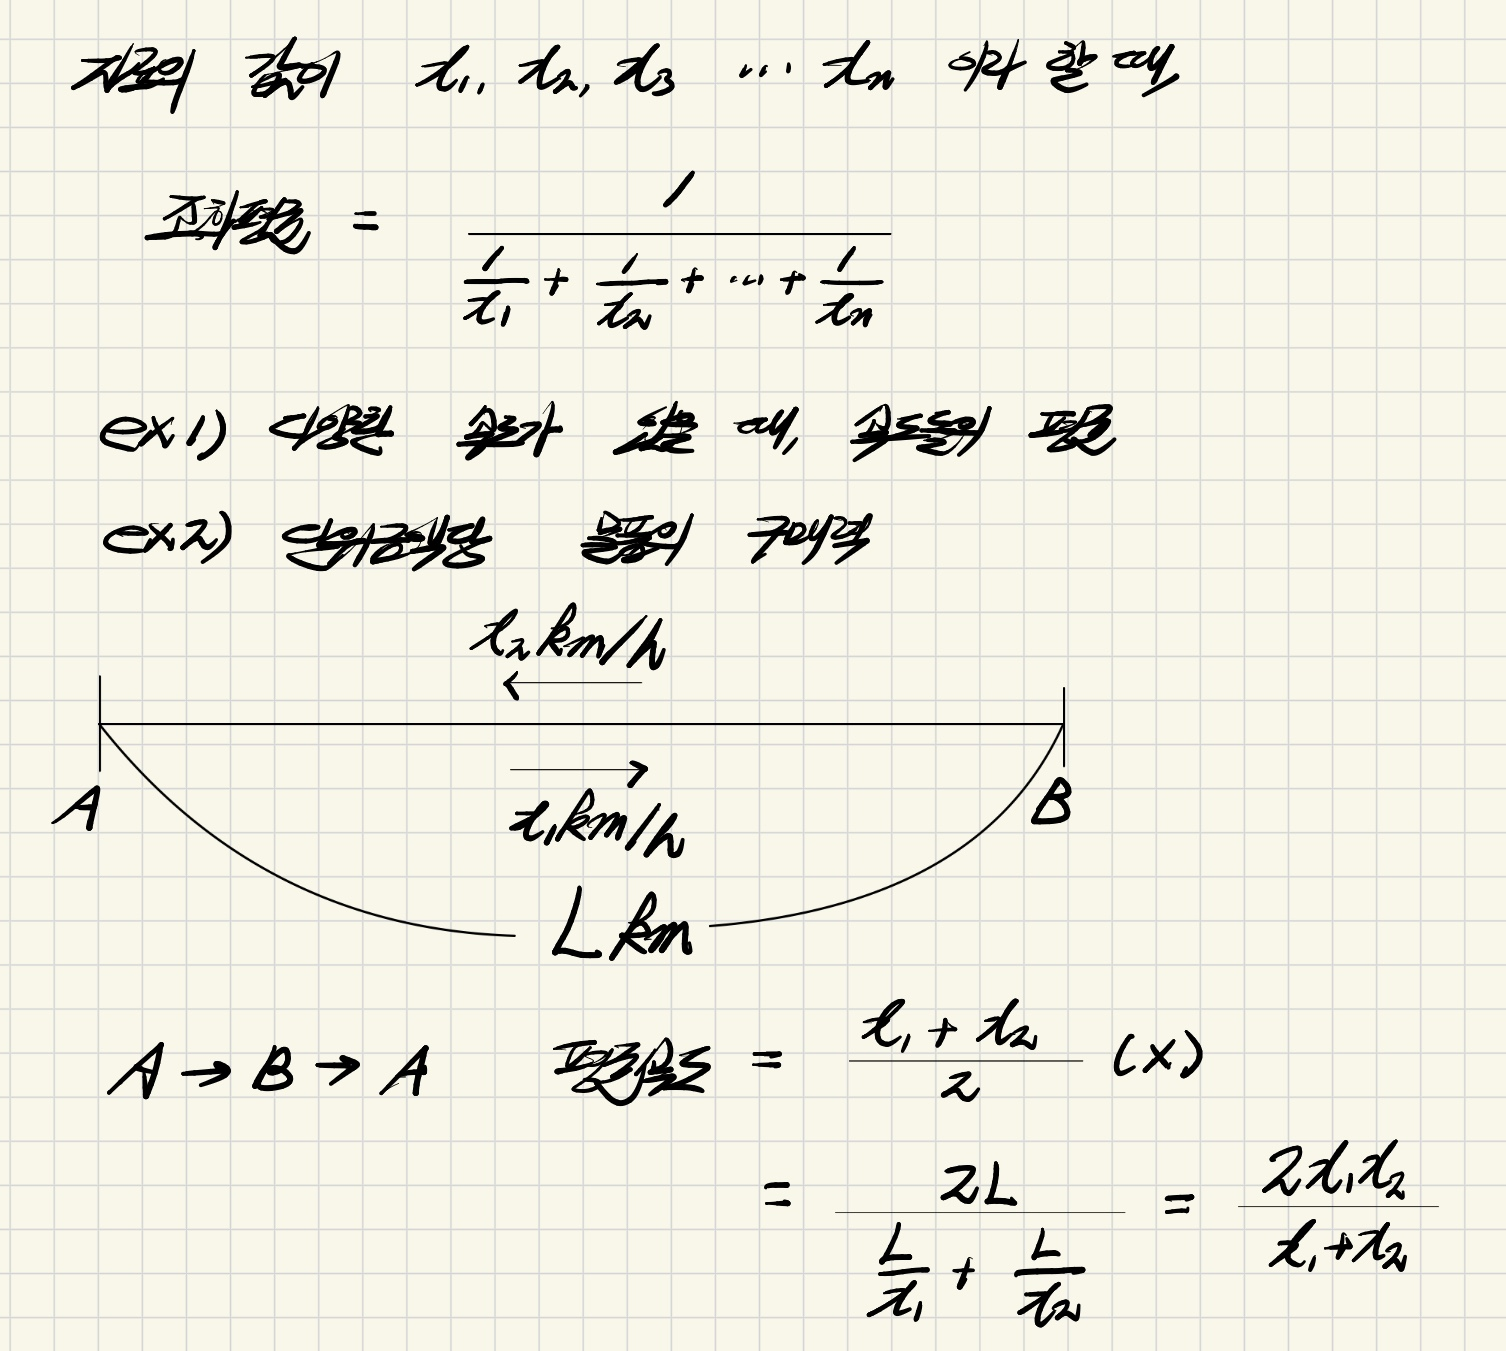 자료의 값이 x₁, x₂, x₃ ... xₙ 이라 할 때,
조화평균 = 1 / (1/x₁ + 1/x₂ + ... + 1/xₙ)
ex1) 다양한 속도가 있을 때, 속도들의 평균
ex2) 단위금액당 물품의 구매력
x₂ km/h
←
→
A B
x₁ km/h
L km
A → B → A 평균속도 = (x₁ + x₂) / 2 (X)
= 2L / (L/x₁ + L/x₂) = 2x₁x₂ / (x₁+x₂)